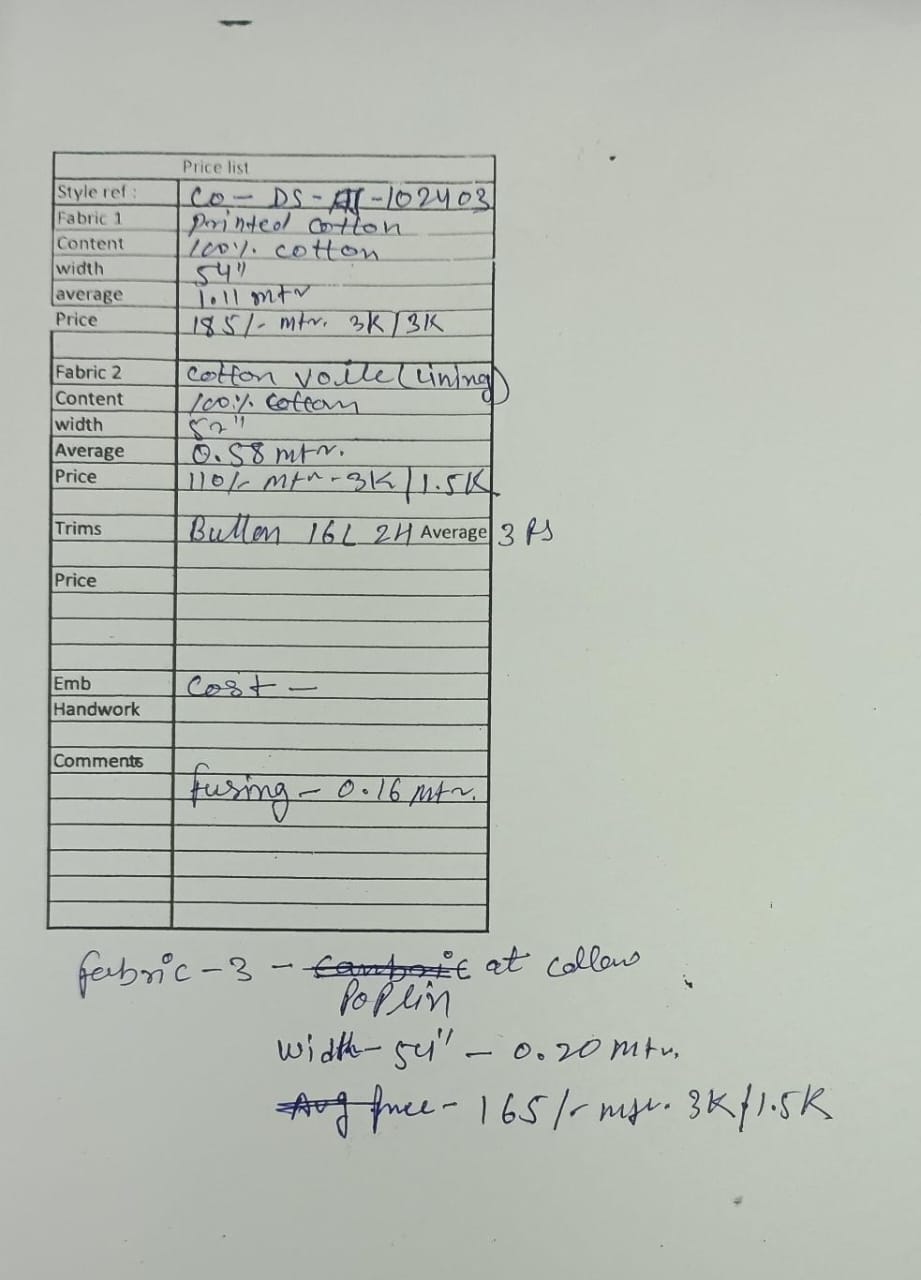 Price list
Style ref : CO - DS - -102403
Fabric 1 Printed cotton
Content 100% cotton
width 54"
average 1.11 mtr
Price 185/- mtr. 3K/3K
Fabric 2 Cotton voile (Lining)
Content 100% Cotton
width 52"
Average 0.58 mtr.
Price 110/- mtr - 3K/1.5K
Trims Button 16L 2H Average 3 Ps
Price
Emb Cost -
Handwork
Comments
fusing - 0.16 mtr.
fabric - 3 - at collar
Poplin
Width - 54" - 0.20 mtr.
Price - 165/- mtr. 3K/1.5K